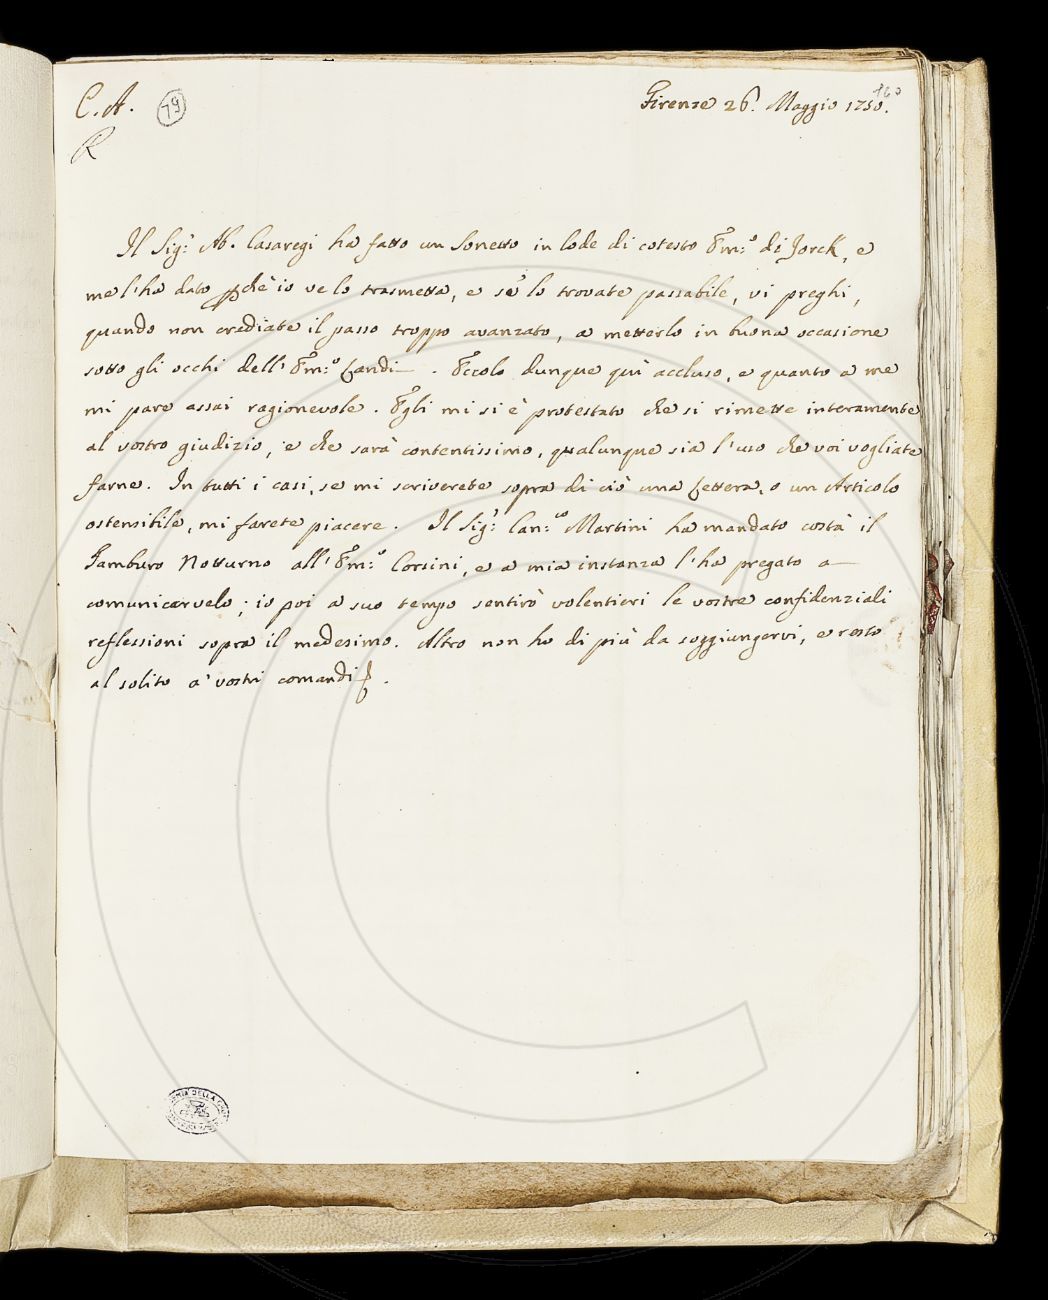 C. A. 79 Firenze 26. Maggio 1750. 160
R
Il Sig.r Ab. Casaregi ha fatto un Sonetto in lode di cotesto Em.o di Jorck, e
me l'ha dato pchè io ve lo trasmetta, e se lo trovate passabile, vi preghi,
quando non crediate il passo troppo avanzato, a metterlo in buona occasione
sotto gli occhi dell' Em.o Landi. Eccolo dunque qui accluso, e quanto a me
mi pare assai ragionevole. Egli mi si è protestato che si rimette interamente
al vostro giudizio, e che sarà contentissimo, qualunque sia l'uso che voi vogliate
farne. In tutti i casi, se mi scriverete sopra di ciò una Lettera, o un Articolo
ostensibile, mi farete piacere. Il Sig.r Can.co Martini ha mandato costà il
Tamburo Notturno all' Em.o Corsini, e a mia instanza l'ha pregato a
comunicarvelo; io poi a suo tempo sentirò volentieri le vostre confidenziali
reflessioni sopra il medesimo. Altro non ho di più da soggiungervi, e resto
al solito a' vostri comandi.